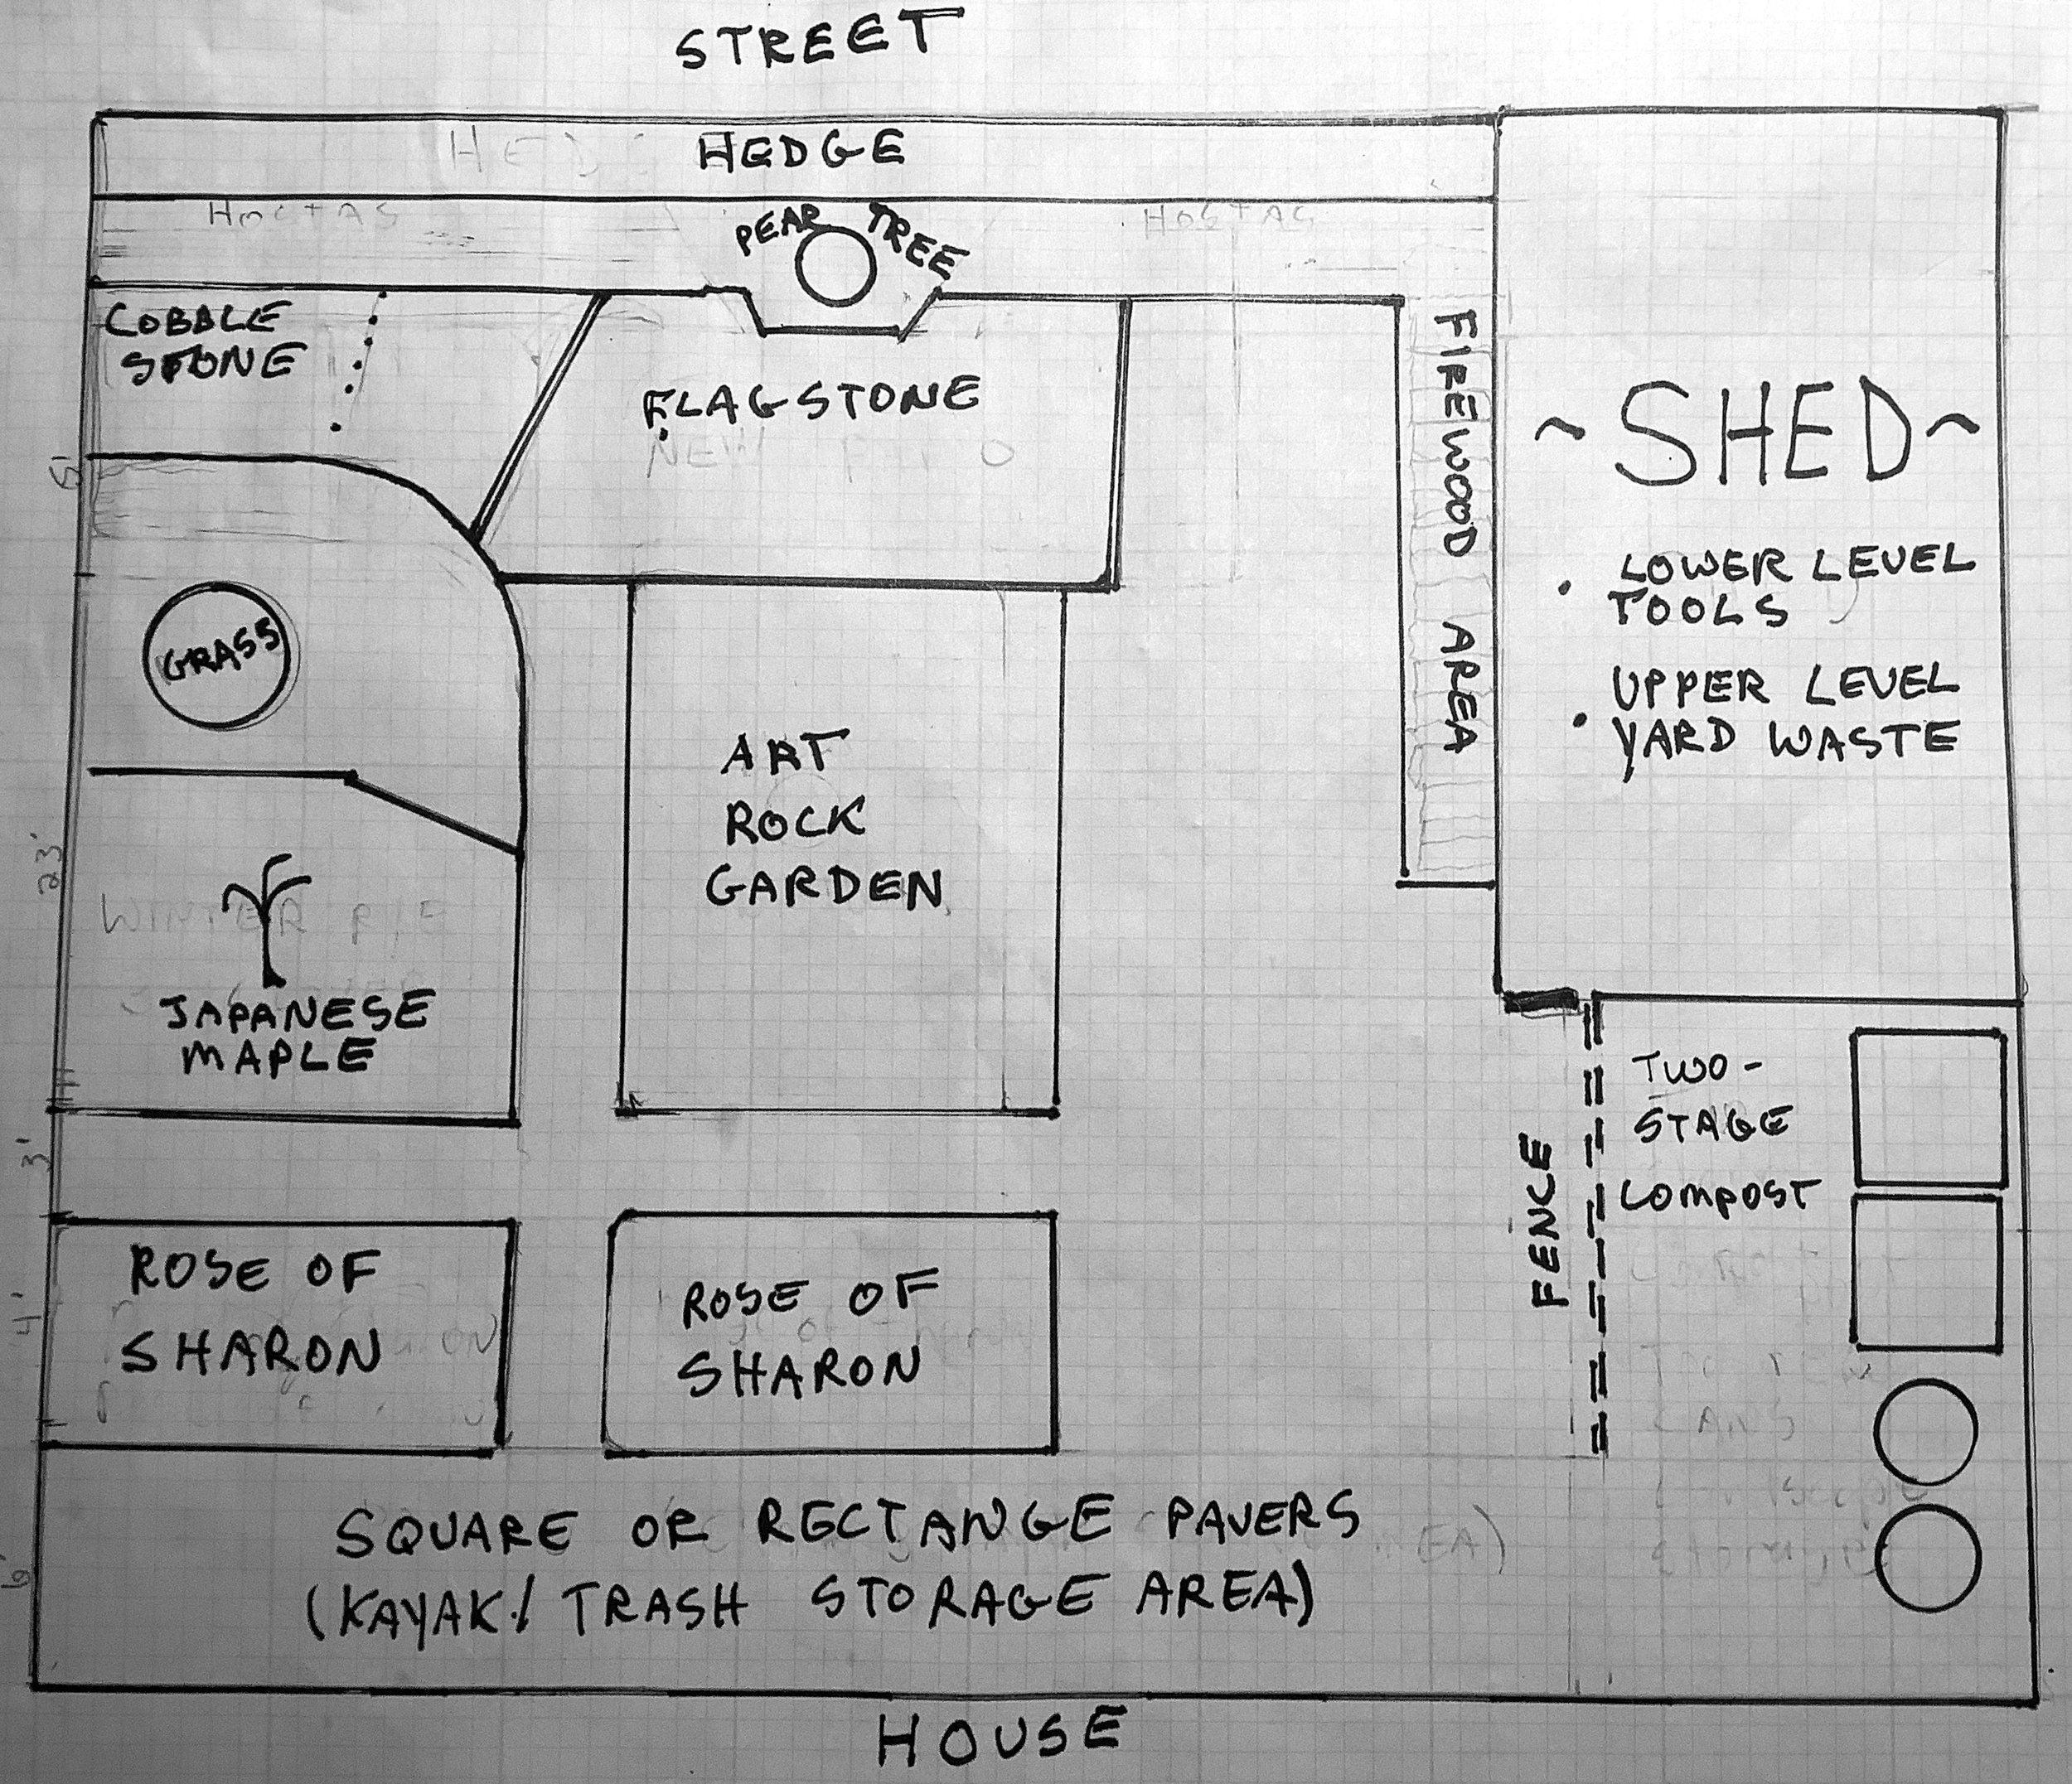 STREET
HEDGE
HOSTAS
HOSTAS
PEAR TREE
COBBLE
STONE
FLAGSTONE
NEW
FIREWOOD AREA
~ SHED ~
5'
• LOWER LEVEL
TOOLS
GRASS
• UPPER LEVEL
YARD WASTE
ART
ROCK
GARDEN
23'
WINTER
JAPANESE
MAPLE
TWO-
STAGE
COMPOST
FENCE
3'
ROSE OF
SHARON
ROSE OF
SHARON
4'
CANS
SQUARE OR RECTANGE PAVERS
(KAYAK / TRASH STORAGE AREA)
6'
HOUSE